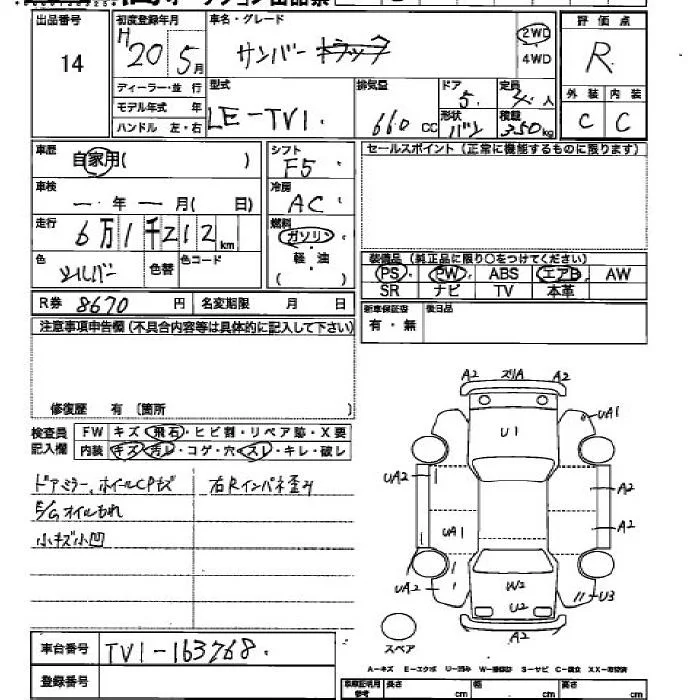 出品番号 初度登録年月 車名・グレード 評価点
14 H20 5月 サンバー トラック 2WD・4WD R
ディーラー・並 行
モデル年式 年
ハンドル 左・右
型式 LE-TV1
排気量 660 cc
ドア 5
形状 バン
定員 人
積載 350kg
外装 内装
C C
車歴 自家用( )
シフト F5
セールスポイント(正常に機能するものに限ります)
車検 ー・年ー月( 日)
冷房 AC
走行 6万1千212km
燃料 ガソリン・軽・油( )
色 シルバー 色替 色コード
装備品(純正品に限り○をつけてください)
PS PW ABS エアB AW
SR ナビ TV 本革
R券 8670 円 名変期限 月 日
新車保証書 有・無 後日品
注意事項申告欄(不具合内容等は具体的に記入して下さい)
修復歴 有(箇所 )
検査員記入欄
FW キズ・飛石・ヒビ割・リペア跡・X要
内装 キズ・汚レ・コゲ・穴・スレ・キレ・破レ
ドアミラー、ホイールCPキズ 右Rインパネ歪み
E/Gオイルもれ
小キズ小凹
A2 スリA A2
U1 UA1
UA2 A2
UA1 A2
UA2 W2 U3
U2
A2
スペア
A-キズ E-エクボ U-凹み W-補修跡 S-サビ C-腐食 XX-交換済
車台番号 TV1-163768
登録番号
車庫証明用参考 長さ cm 幅 cm 高さ cm